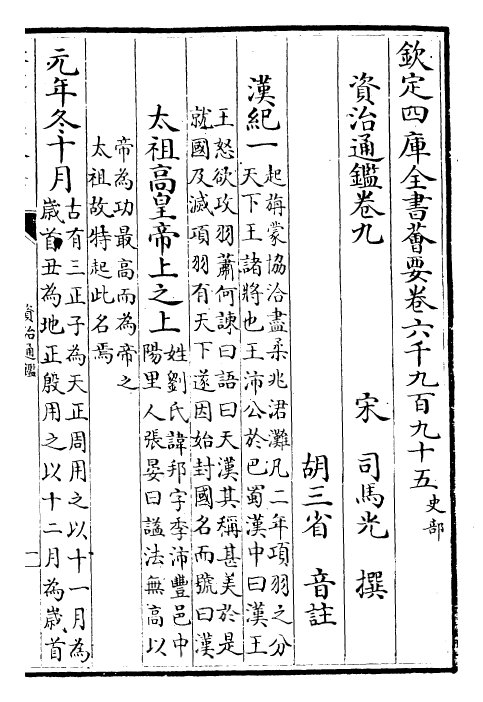 欽定四庫全書薈要卷六千九百九十五史部
資治通鑑卷九
宋 司馬光 撰
胡三省 音註
漢紀一
起旃蒙協洽盡柔兆涒灘凡二年項羽之分
天下王諸將也王沛公於巴蜀漢中曰漢王
王怒欲攻羽蕭何諫曰語曰天漢其稱甚美於是
就國及滅項羽有天下遂因始封國名而號曰漢
太祖髙皇帝上之上
姓劉氏諱邦字季沛豐邑中
陽里人張晏曰諡法無髙以
帝為功最髙而為帝之
太祖故特起此名焉
元年冬十月
古有三正子為天正周用之以十一月為
歲首丑為地正殷用之以十二月為歲首
資治通鑑
一